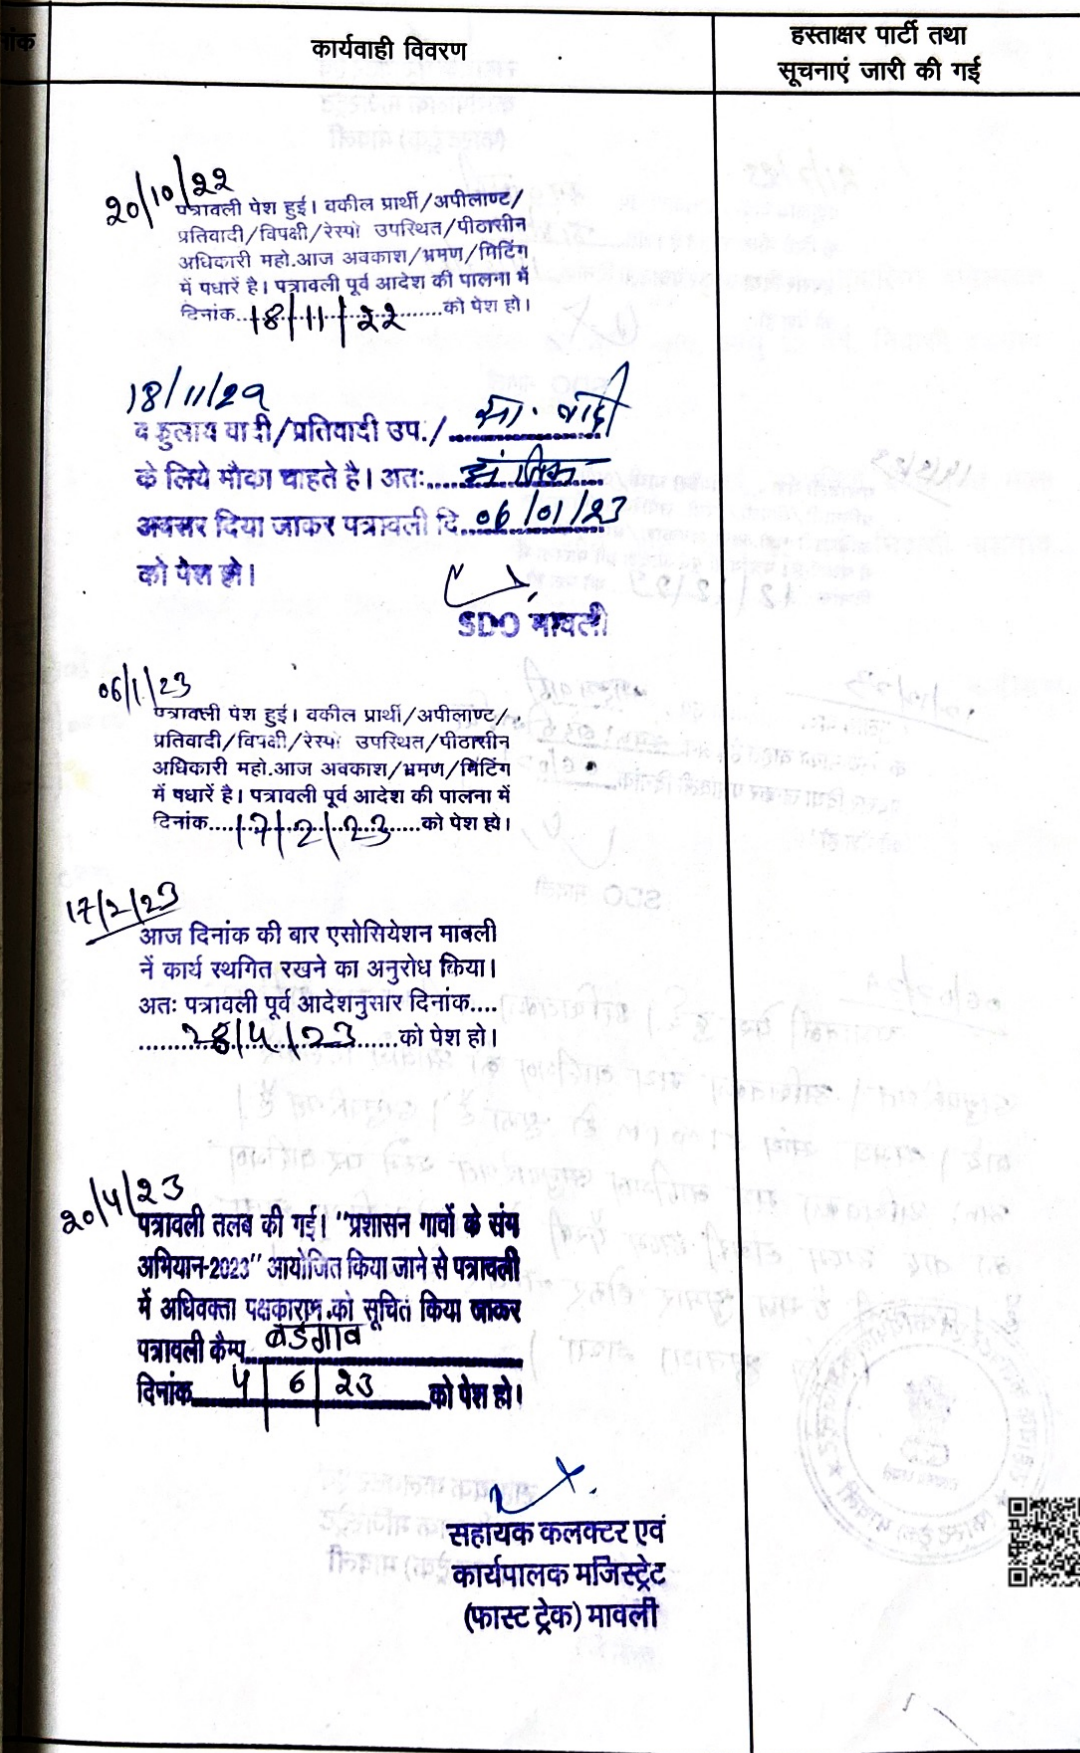 कार्यवाही विवरण
हस्ताक्षर पार्टी तथा
सूचनाएं जारी की गई
20/10/22
पत्रावली पेश हुई। वकील प्रार्थी/अपीलाण्ट/
प्रतिवादी/विपक्षी/रेस्पो उपस्थित/पीठासीन
अधिकारी महो.आज अवकाश/भ्रमण/मिटिंग
में पधारें है। पत्रावली पूर्व आदेश की पालना में
दिनांक....18/11/22......को पेश हो।
18/11/22
वकुलाय वादी/प्रतिवादी उप./ सा. वादी
के लिये मौका चाहते है। अतः....
अवसर दिया जाकर पत्रावली दि. 06/01/23
को पेश हो।
SDO मावली
06/1/23
पत्रावली पेश हुई। वकील प्रार्थी/अपीलाण्ट/
प्रतिवादी/विपक्षी/रेस्पो उपस्थित/पीठासीन
अधिकारी महो.आज अवकाश/भ्रमण/मिटिंग
में पधारें है। पत्रावली पूर्व आदेश की पालना में
दिनांक....17/2/23......को पेश हो।
17/2/23
आज दिनांक की बार एसोसियेशन मावली
नें कार्य स्थगित रखने का अनुरोध किया।
अतः पत्रावली पूर्व आदेशनुसार दिनांक....
......28/4/23......को पेश हो।
20/4/23
पत्रावली तलब की गई। "प्रशासन गावों के संग
अभियान-2023" आयोजित किया जाने से पत्रावली
में अधिवक्ता पक्षकारान को सूचित किया जाकर
पत्रावली कैम्प बडगाव
दिनांक 4/6/23 को पेश हो।
सहायक कलक्टर एवं
कार्यपालक मजिस्ट्रेट
(फास्ट ट्रेक) मावली